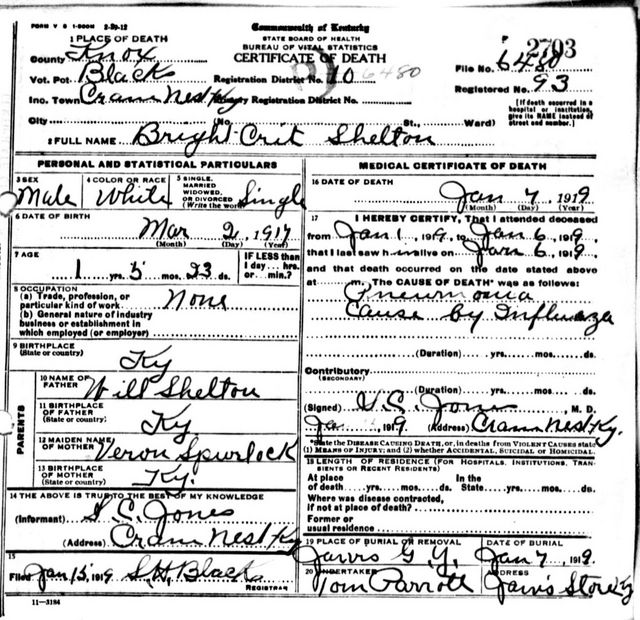 FORM V S 1-500M 2-29-12
Commonwealth of Kentucky
STATE BOARD OF HEALTH
BUREAU OF VITAL STATISTICS
CERTIFICATE OF DEATH
1 PLACE OF DEATH
County Knox
Vot. Pct. Black
Registration District No. 10 6480
Inc. Town Crann Nest Ky Primary Registration District No.
City (No. St., Ward)
2793
File No. 6480
Registered No. 93
[If death occurred in a hospital or institution, give its NAME instead of street and number.]
2 FULL NAME Bright Crit Shelton
PERSONAL AND STATISTICAL PARTICULARS
3 SEX Male
4 COLOR OR RACE White
5 SINGLE, MARRIED WIDOWED, OR DIVORCED (Write the word) Single
6 DATE OF BIRTH
Mar 2, 1917
(Month) (Day) (Year)
7 AGE
1 yrs. 5 mos. 23 ds.
IF LESS than 1 day.... hrs. or.... min.?
8 OCCUPATION
(a) Trade, profession, or particular kind of work None
(b) General nature of industry business or establishment in which employed (or employer)
9 BIRTHPLACE
(State or country) Ky
PARENTS
10 NAME OF FATHER Will Shelton
11 BIRTHPLACE OF FATHER (State or country) Ky
12 MAIDEN NAME OF MOTHER Veron Spurlock
13 BIRTHPLACE OF MOTHER (State or country) Ky.
14 THE ABOVE IS TRUE TO THE BEST OF MY KNOWLEDGE
(Informant) S. C. Jones
(Address) Crann Nest Ky
15
Filed Jan 15, 1919 S. H. Black
REGISTRAR
11-3184
MEDICAL CERTIFICATE OF DEATH
16 DATE OF DEATH
Jan 7 1919
(Month) (Day) (Year)
17 I HEREBY CERTIFY, That I attended deceased
from Jan 1, 1919, to Jan 6, 1919,
that I last saw h alive on Jan 6, 1919,
and that death occurred on the date stated above
at m. The CAUSE OF DEATH* was as follows:
Pneumonia
Cause by Influenza
(Duration) yrs. mos. ds.
Contributory
(SECONDARY)
(Duration) yrs. mos. ds.
(Signed) Jones, M. D.
Jan 1919 (Address) Crann Nest Ky.
*State the DISEASE CAUSING DEATH, or, in deaths from VIOLENT CAUSES state (1) MEANS OF INJURY; and (2) whether ACCIDENTAL, SUICIDAL or HOMICIDAL.
18 LENGTH OF RESIDENCE (FOR HOSPITALS, INSTITUTIONS, TRANSIENTS OR RECENT RESIDENTS)
At place of death yrs. mos. ds. In the State yrs. mos. ds.
Where was disease contracted, if not at place of death?
Former or usual residence
19 PLACE OF BURIAL OR REMOVAL Jarvis G. Y.
DATE OF BURIAL Jan 7, 1919
20 UNDERTAKER Tom Parrott
ADDRESS Jarvis Store Ky